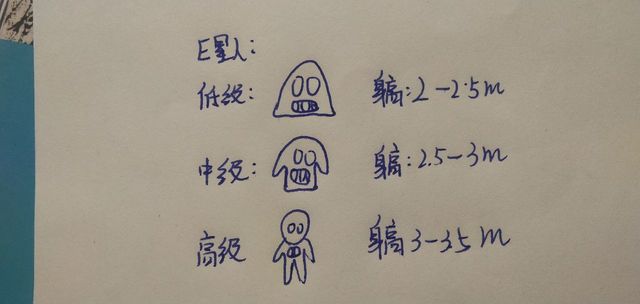 E星人:
低级: 身高:2-2.5m
中级: 身高:2.5-3m
高级 身高3-3.5m